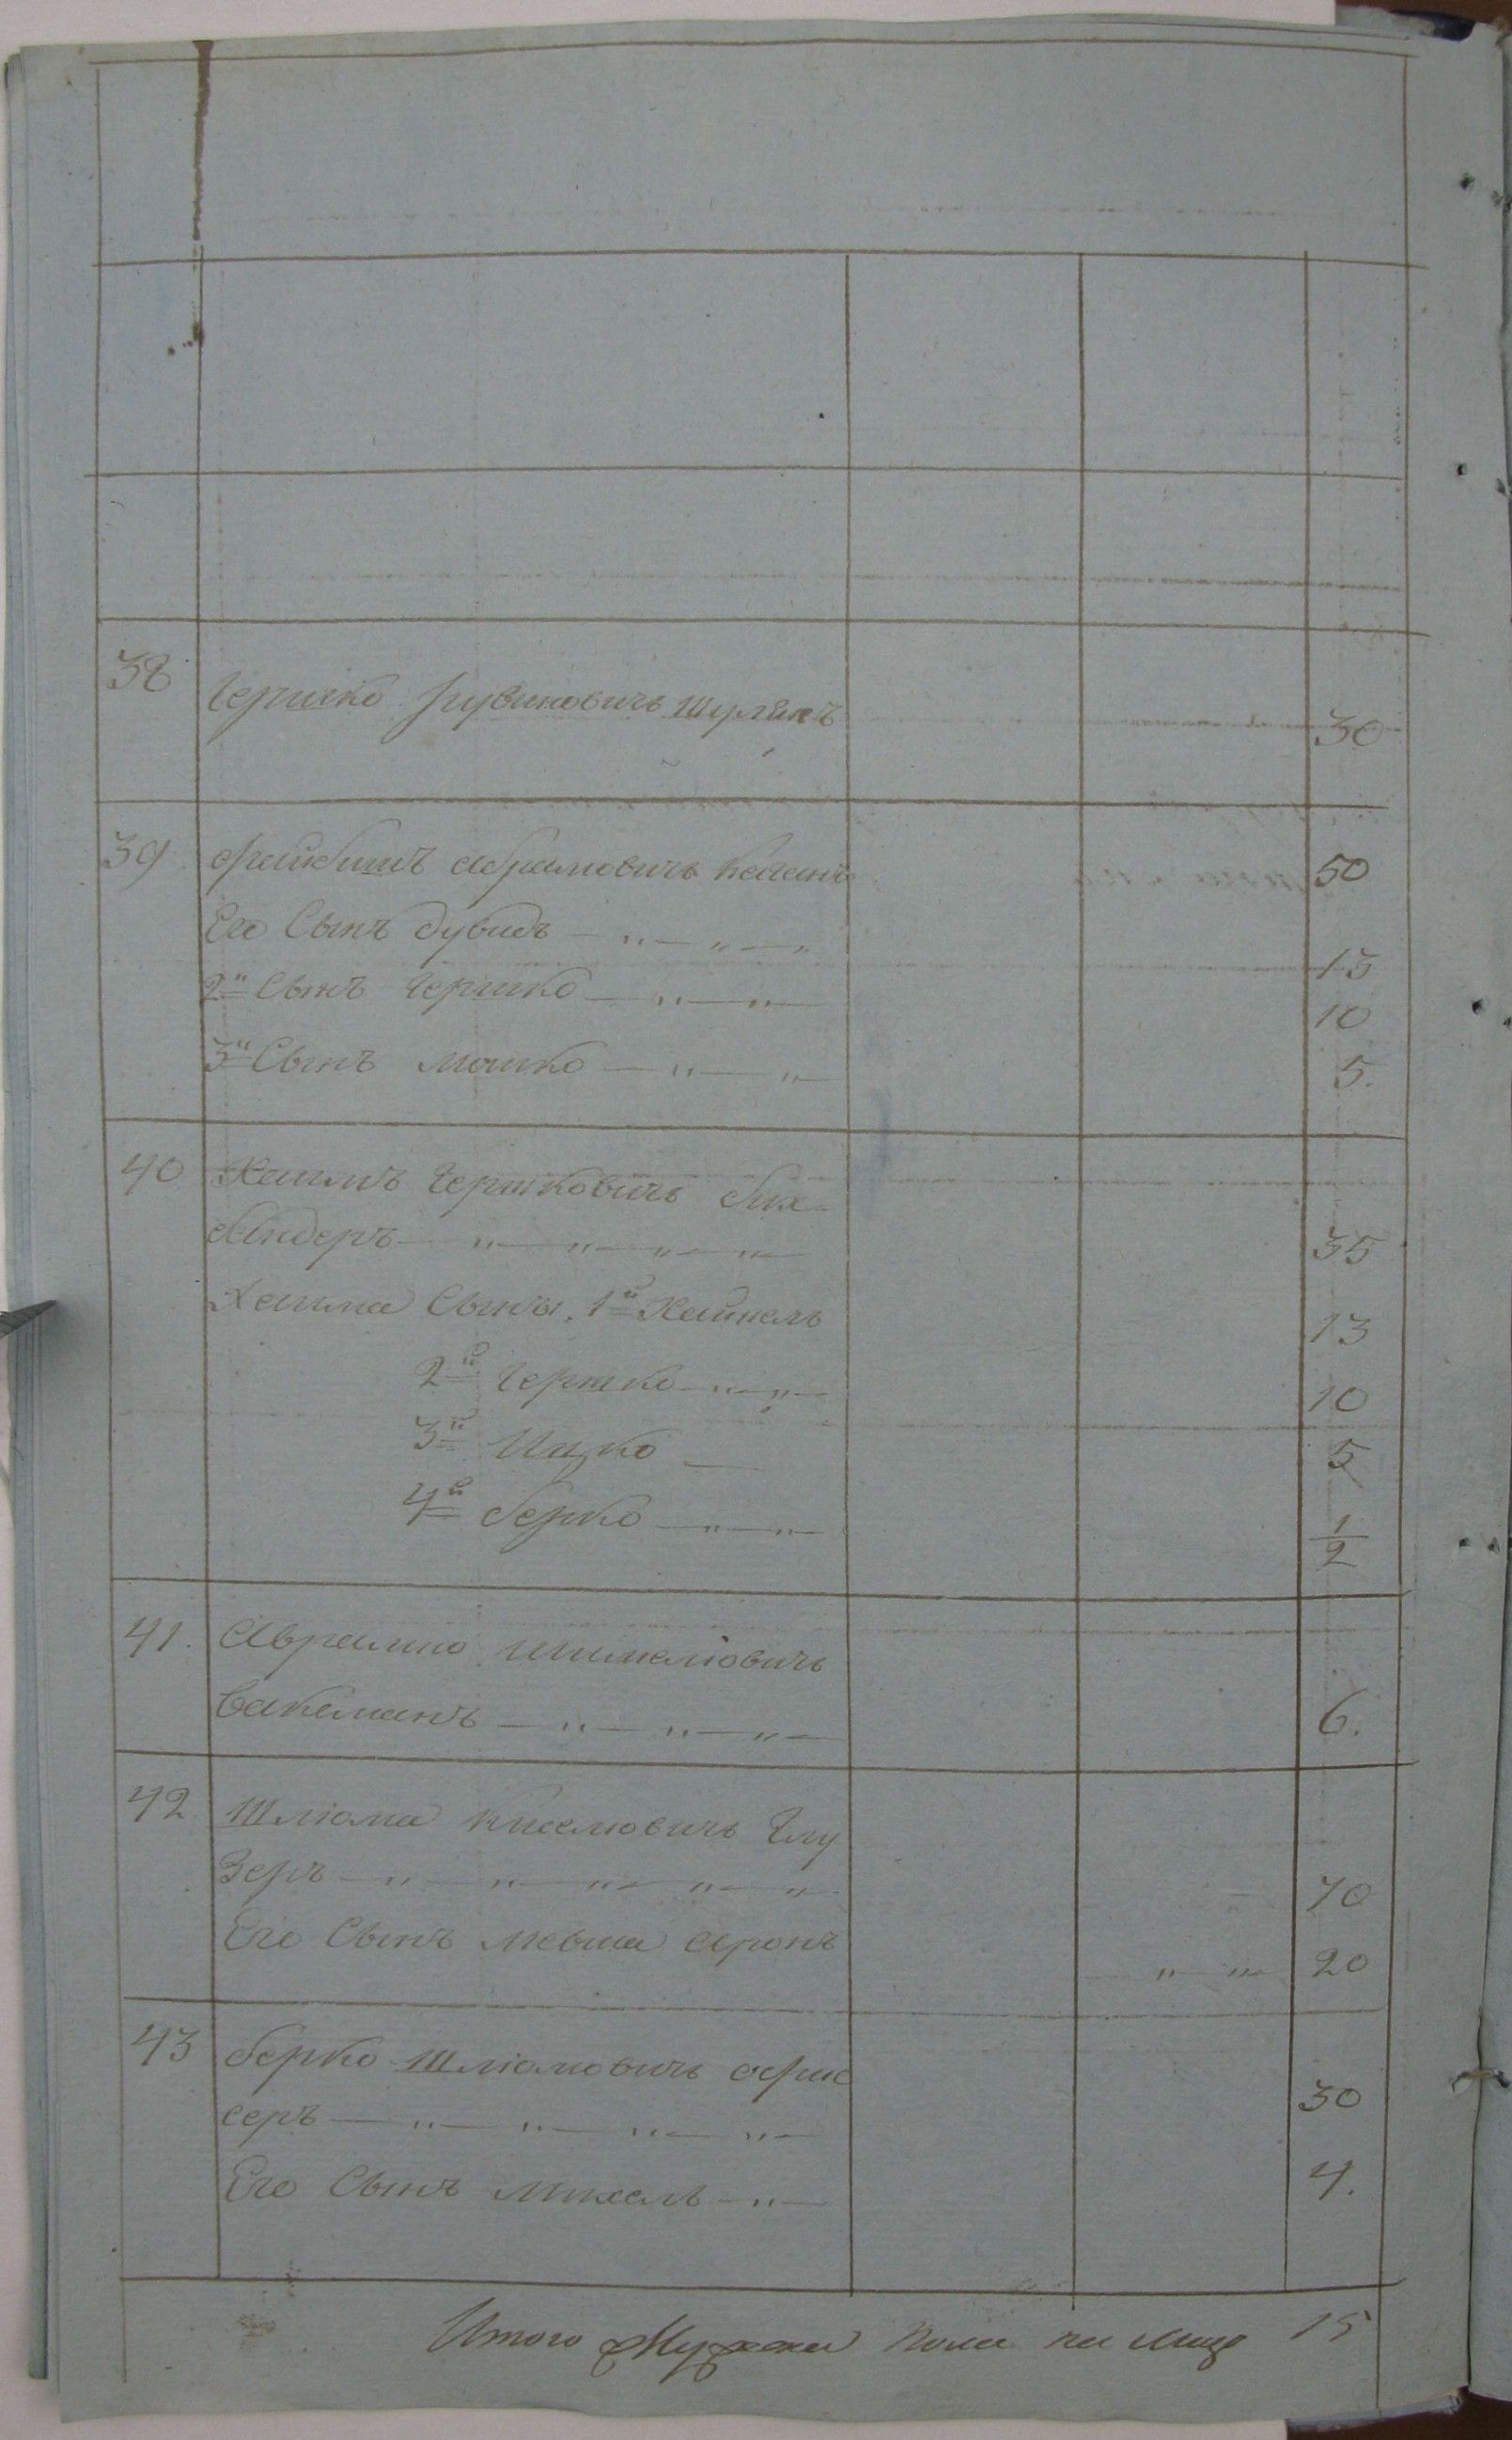 38 Гершко Рувиновичъ Шулякъ 30
39 Файбишъ Абрамовичъ Каганъ 50
Его Сынъ Дувидъ — „ — „ — „ 15
2й Сынъ Гершко — „ — „ — 10
3й Сынъ Мошко — „ — „ — 5.
40 Хаимъ Гершковичъ Бук-
биндеръ — „ — „ — „ — „ — 35
Хаима Сыны, 1й Хайкель 13
2й Гершко — „ — „ — 10
3й Ицко — 5
4й Берко — „ — „ — 1/2
41. Аврамко Шмилиовичъ
Вакеманъ — „ — „ — „ — 6.
42 Шліома Киселиовичъ Глу
зеръ — „ — „ — „ — „ — „ 70
Его Сынъ Мевша Аронъ „ „ 20
43 Берко Шліомовичъ Офи
серъ — „ — „ — „ — „ — 30
Его Сынъ Михель — „ — 4.
Итого Мужска пола на лицо 15